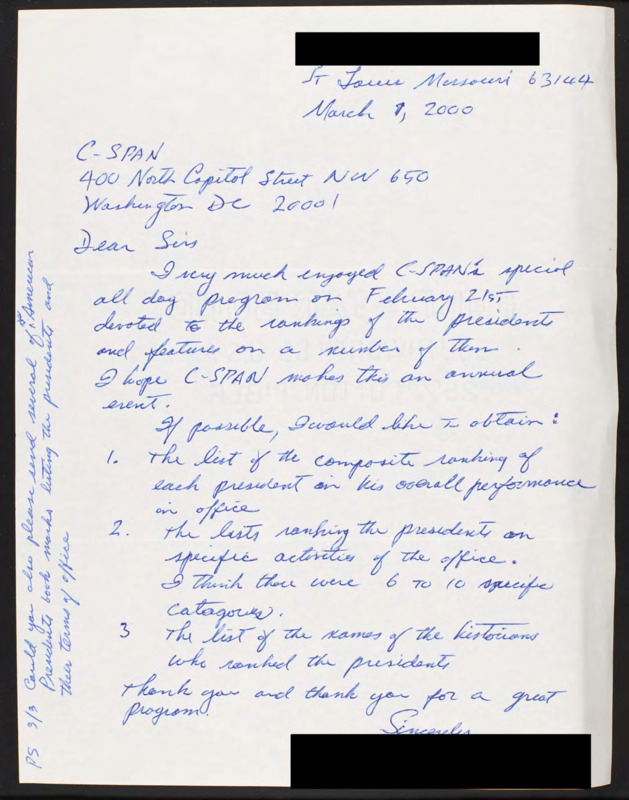 St Louis Missouri 63144
March 1, 2000
C-SPAN
400 North Capitol Street NW 650
Washington DC 20001
Dear Sirs
I very much enjoyed C-SPAN's special
all day program on February 21st,
devoted to the rankings of the presidents
and features on a number of them.
I hope C-SPAN makes this an annual
event.
If possible, I would like to obtain:
1. The list of the composite ranking of
each president on his overall performance
in office
2. The lists ranking the presidents on
specific activities of the office.
I think there were 6 to 10 specific
catagories.
3 The list of the names of the historians
who ranked the presidents
Thank you and thank you for a great
program.
Sincerely
PS 3/3 Could you also please send several of the American
Presidents book marks listing the presidents and
their terms of office